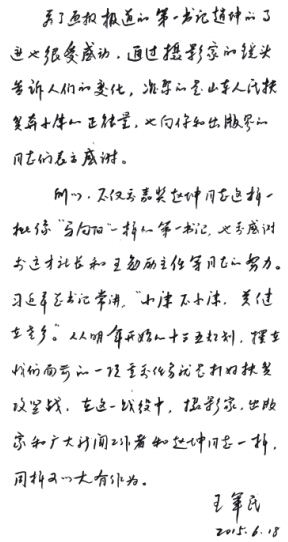 看了孟祝报道的第一书记赵坤的了
迹也很受感动，通过摄影家的镜头
告诉人们的变化，
奔小康的正能量，也向你和出版界的
同志们表示感谢。
所以，不仅要嘉奖赵坤同志这样一
批像“马向阳”一样的第一书记，也要感谢
李才社长和王勤 主任等同志的努力。
习近平总书记常讲，“小康不小康，关键
在老乡。”从明年开始的十三五规划，摆在
我们面前的一项重要任务就是打好扶贫
攻坚战，在这一战役中，摄影家、出版
家和广大新闻工作者和赵坤同志一样，
同样可以大有作为。
王军民
2015.6.18